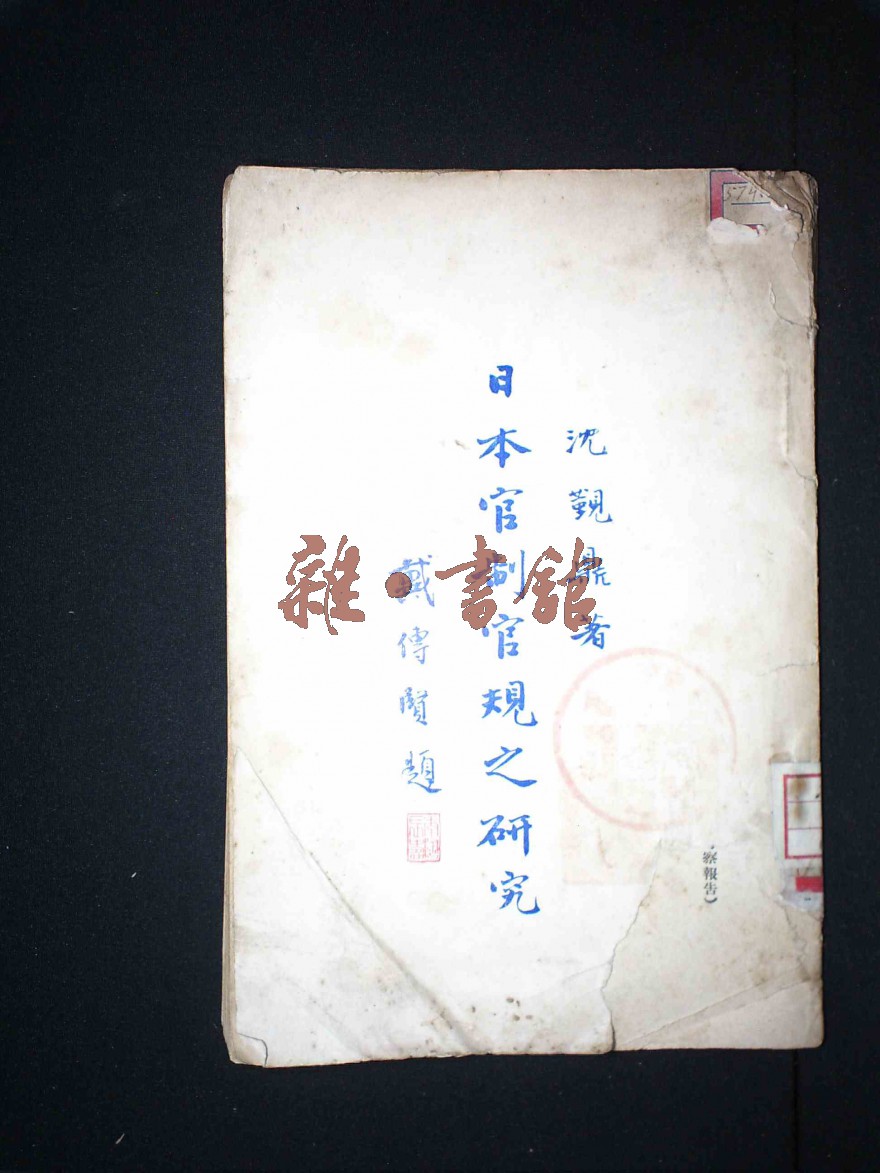 574.
沈覲鼎著
日本官制官規之研究
戴傳賢題
察報告）
雜·書館